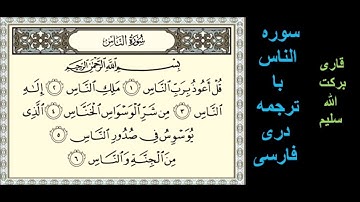 سورة الناس
بِسْمِ اللَّهِ الرَّحْمَٰنِ الرَّحِيمِ
قُلْ أَعُوذُ بِرَبِّ النَّاسِ ١ مَلِكِ النَّاسِ ٢ إِلَٰهِ
النَّاسِ ٣ مِن شَرِّ الْوَسْوَاسِ الْخَنَّاسِ ٤ الَّذِي
يُوَسْوِسُ فِي صُدُورِ النَّاسِ ٥
مِنَ الْجِنَّةِ وَالنَّاسِ ٦
سوره
الناس
با
ترجمه
دری
فارسی
قاری
برکت
الله
سلیم